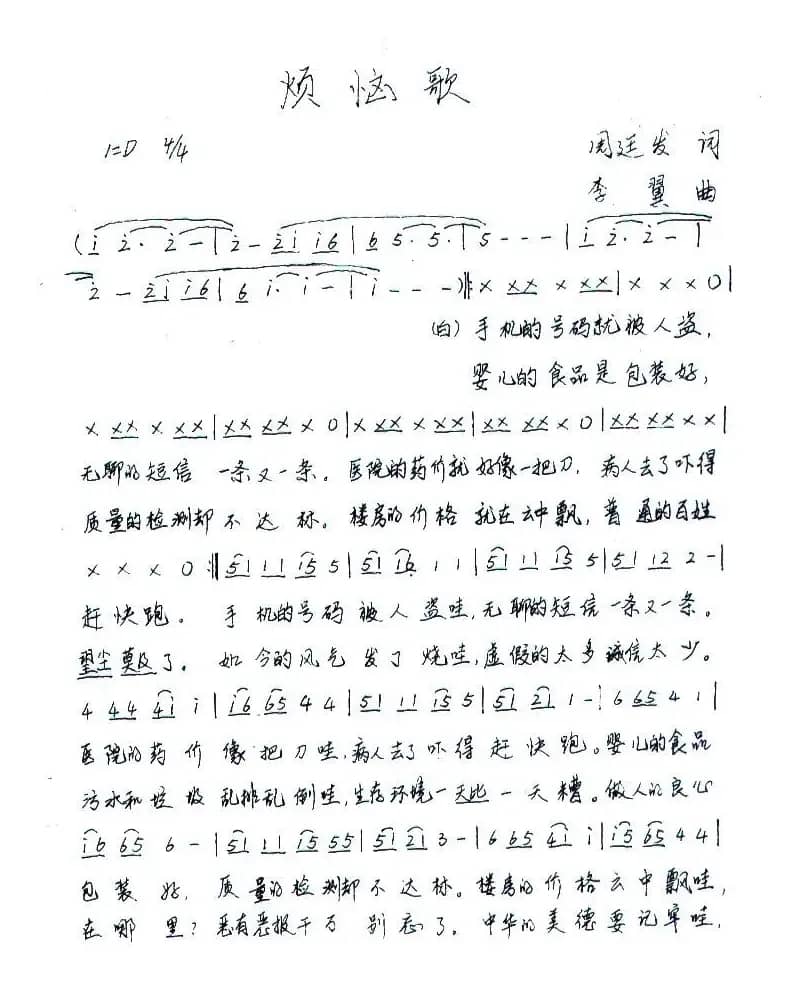 烦恼歌
1=D 4/4
周廷发 词
李翼 曲
(i 2· 2 - | 2 - 2i i6 | 6 5· 5· | 5 - - - | i 2· 2 - |
2 - 2i i6 | 6 i· i - | i - - - )‖: × ×× × ×× | × × × 0 |
(白) 手机的号码就被人盗,
婴儿的食品是包装好,
× ×× × ×× | ×× ×× × 0 | × ×× × ×× | ×× ×× × 0 | ×× ×× × × |
无聊的短信 一条又一条。医院的药价就好像一把刀, 病人去了吓得
质量的检测却不达标。楼房的价格就在云中飘, 普通的百姓
× × × 0 :‖ 51 11 i5 5 | 51 16 1 1 | 51 11 i5 5 | 51 12 2 - |
赶快跑。 手机的号码被人盗哇, 无聊的短信一条又一条。
望尘莫及了。 如今的风气发了烧哇, 虚假的太多诚信太少。
4 44 4i i | i6 65 4 4 | 51 11 i5 5 | 51 21 1 - | 6 665 4 1 |
医院的药价像把刀哇, 病人去了吓得赶快跑。婴儿的食品
污水和垃圾乱排乱倒哇, 生存环境一天比一天糟。做人的良心
i6 65 6 - | 51 11 i5 55 | 51 21 3 - | 6 665 4i i | i5 65 4 4 |
包装好, 质量的检测却不达标。楼房的价格云中飘哇,
在哪里? 恶有恶报千万别忘了。中华的美德要记牢哇,